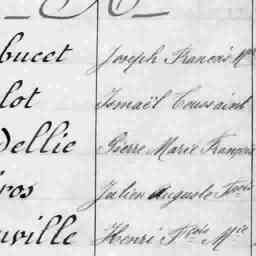 bucet Joseph François Mie
lot Ismaël Toussaint
Dellie Pierre Marie François
ros Julien Auguste Louis
uville Henri Fçois Mie